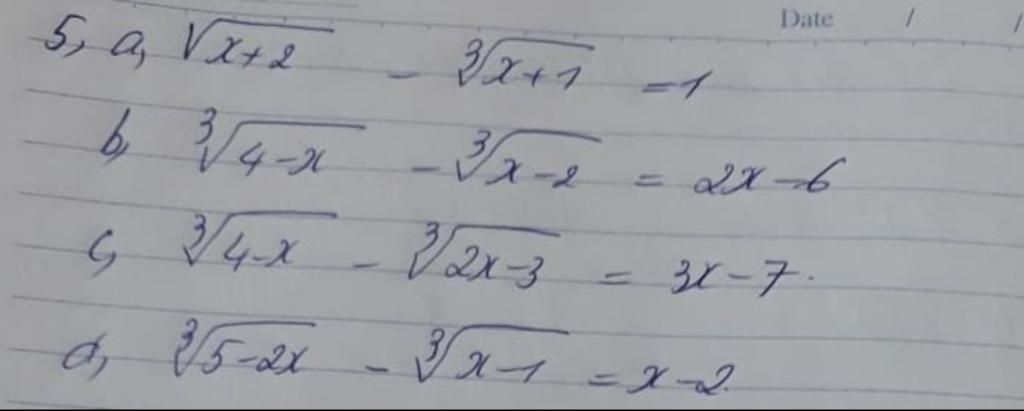 Date / /
5, a, √(x+2) - ∛(x+1) = 1
b, ∛(4-x) - ∛(x-2) = 2x-6
c, ∛(4-x) - ∛(2x-3) = 3x-7.
d, ∛(5-2x) - ∛(x-1) = x-2.